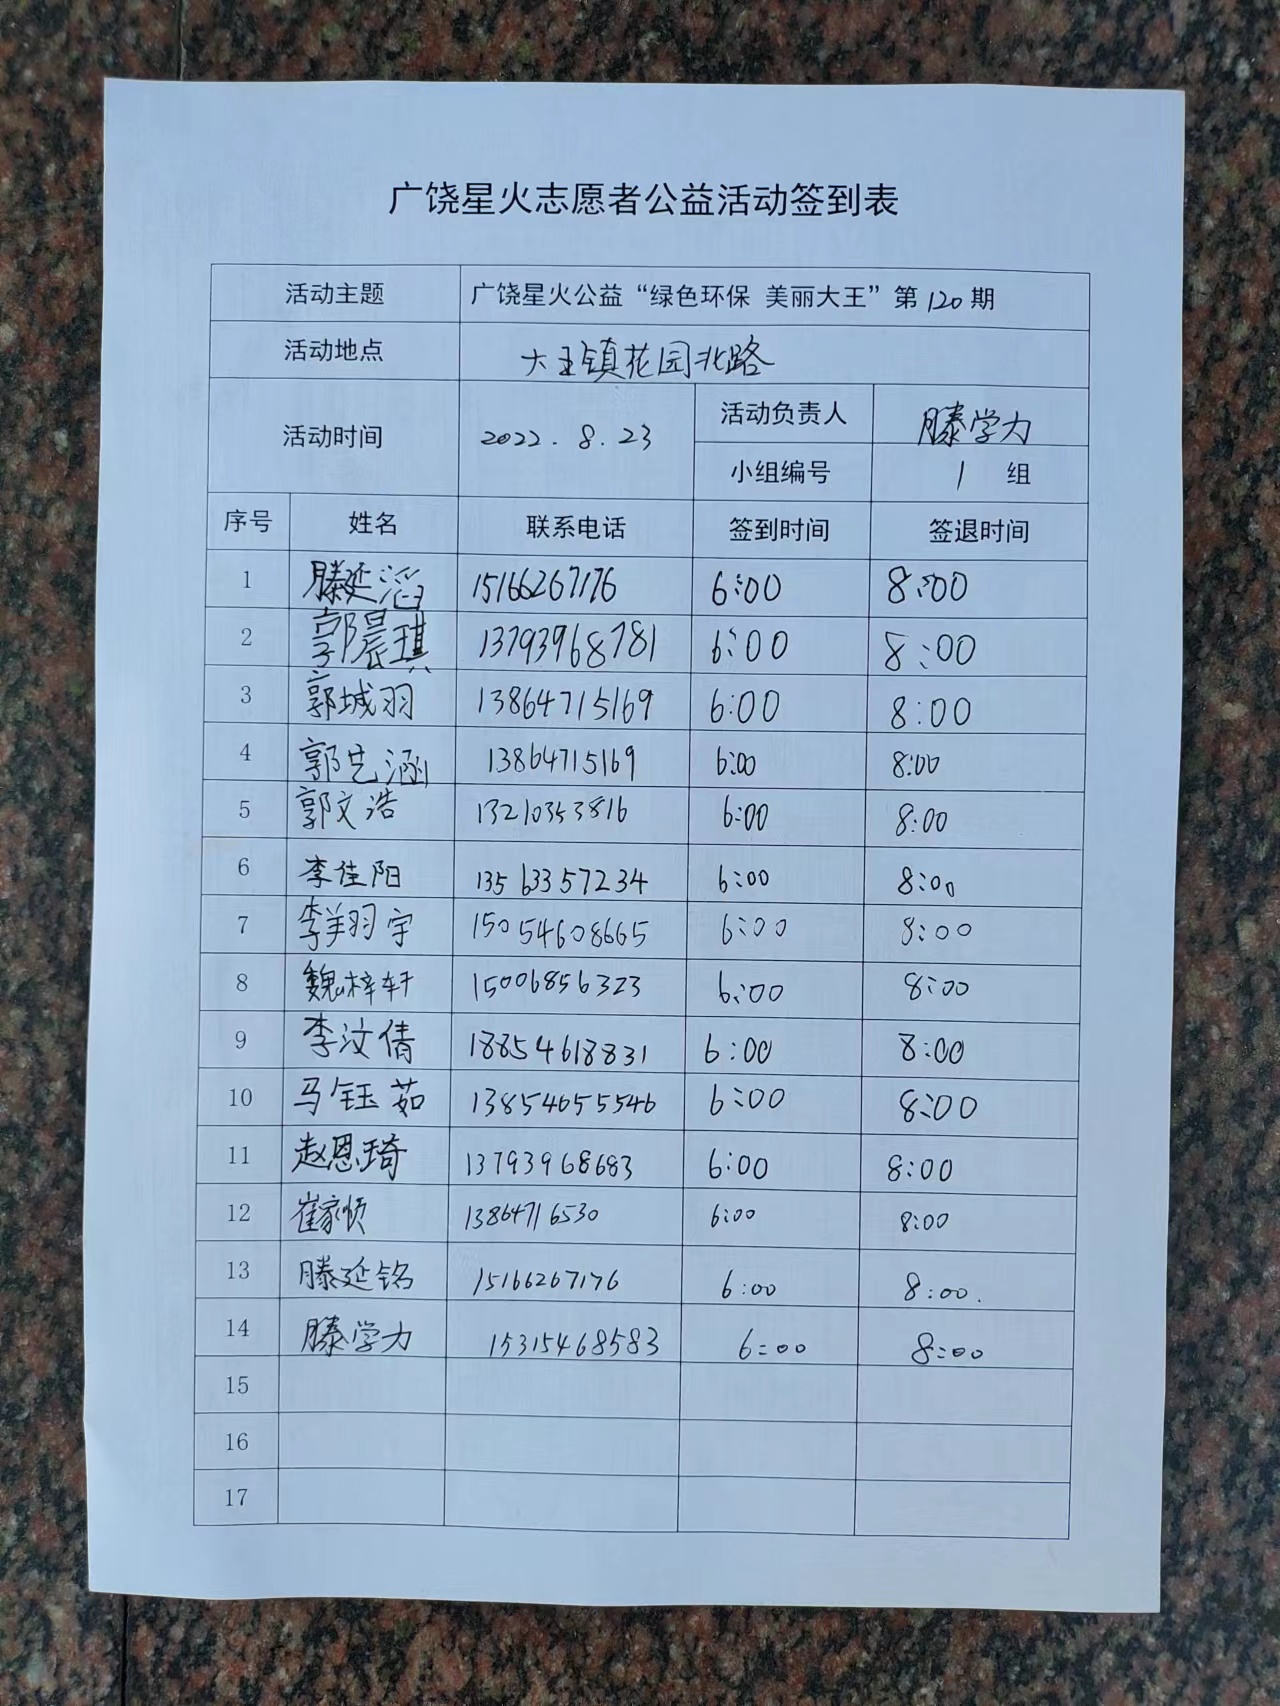 广饶星火志愿者公益活动签到表
活动主题 广饶星火公益“绿色环保 美丽大王”第120期
活动地点 大王镇花园北路
活动时间 2022.8.23 活动负责人 滕学力
小组编号 1 组
序号 姓名 联系电话 签到时间 签退时间
1 滕延滔 15166267176 6:00 8:00
2 郭晨琪 13793968781 6:00 8:00
3 郭城羽 13864715169 6:00 8:00
4 郭艺涵 13864715169 6:00 8:00
5 郭文浩 13210353816 6:00 8:00
6 李佳阳 13563357234 6:00 8:00
7 李羽宇 15054608665 6:00 8:00
8 魏梓轩 15006856323 6:00 8:00
9 李汶倩 18854618831 6:00 8:00
10 马钰茹 13854655546 6:00 8:00
11 赵恩琦 13793968683 6:00 8:00
12 崔家帧 13864716530 6:00 8:00
13 滕延铭 15166267176 6:00 8:00.
14 滕学力 15315468583 6:00 8:00
15
16
17